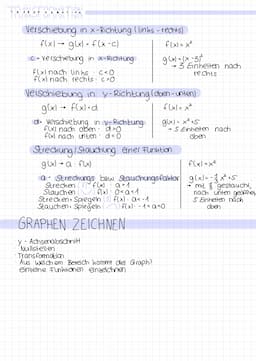 TRANSFORMATION
Verschiebung in x-Richtung (links-rechts)
f(x) → g(x) = f(x-c)
f(x)= x²
c = Verschiebung in x-Richtung
g(x) = (x-5)²
→ 5 Einheiten nach rechts
f(x) nach links : c<0
f(x) nach rechts : c>0
Verschiebung in y-Richtung (oben-unten)
g(x) → f(x)+d
f(x)= x²
d = Verschiebung in y-Richtung
g(x) = x²+5
f(x) nach oben : d>0
→ 5 Einheiten nach oben
f(x) nach unten : d<0
Streckung/Stauchung einer Funktion
g(x) → a · f(x)
f(x)= x²
a = Streckungs bzw Stauchungsfaktor
Strecken f(x) : a>1
→ mit gestaucht,
Stauchen f(x) : 0<a<1
nach unten geöffnet
Strecken + Spiegeln f(x) : a<-1
5 Einheiten nach oben
Stauchen + Spiegeln f(x) : -1<a<0
GRAPHEN ZEICHNEN
y - Achsenabschnitt
Nullstellen
Transformation
Aus welchem Bereich kommt das Graph?
einzelne Funktionen einzeichnen